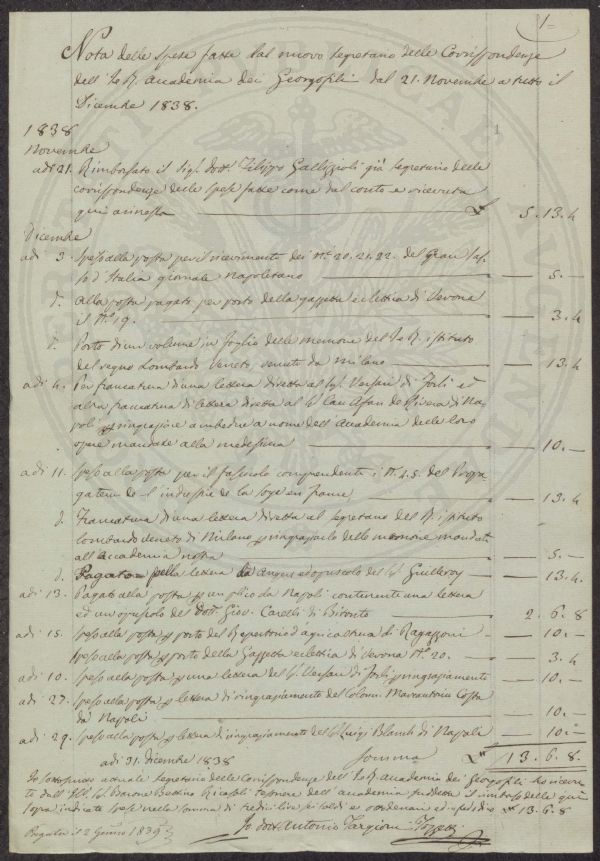 1=
Nota delle Spese fatte dal nuovo Segretario delle Corrispondenze
dell' I. e R. Accademia dei Georgofili dal 21. Novembre a tutto il
Dicembre 1838.
1
1838
Novembre
adì 21. Rimborsato il Sig. Dott. Filippo Gallizioli già Segretario delle
corrispondenze delle spese fatte come dal conto e ricevuta
qui annessa £ 5. 13. 4
Dicembre
adì 3. Speso alla posta per il ricevimento dei Ni. 20. 21. 22. del Gran Sas-
so d'Italia giornale Napoletano — 5. —
d. Alla posta pagato per porto della gazzetta eclettica di Verona
il No. 19. — 3. 4
d. Porto di un volume in foglio delle memorie del I. e R. istituto
del regno Lombardo Veneto, venuto da Milano — 13. 4
adì 4. Per francatura di una lettera diretta al Sig. Versari di Forlì ed
altra francatura di lettera diretta al Cav. Afan de Rivera di Na-
poli p ringraziare ambedue a nome dell' Accademia delle loro
opere mandate alla medesima — 10. —
adì 11. Speso alla posta per il fascicolo comprendente i Ni. 4. 5. del Propa-
gateur de l'industrie de la soye en france — 13. 4
d. Francatura di una lettera diretta al Segretario del R. istituto
lombardo veneto di Milano p ringraziarlo delle memorie mandate
all' Accademia nostra — 5. —
d. Pagato pella lettera da ed opuscolo del Sig. Guilleroy — 13. 4.
adì 13. Pagato alla posta p un plico da Napoli contenente una lettera
ed un opuscolo del Dott. Giov. Carelli di Bitonto — 2. 6. 8
adì 15. Speso alla posta p porto del Repertorio d'agricoltura di Ragazzoni — 10. —
Speso alla posta p porto della Gazzetta eclettica di Verona No. 20. — 3. 4
adì 10. Speso alla posta p una lettera del Sig. Versari di Forlì, ringraziamento — 10. —
adì 27. Speso alla posta p lettera di ringraziamento del Colonn. Marcantonio Costa
da Napoli — 10. —
adì 29. Speso alla posta p lettera di ringraziamento del Sig. Luigi Blanch di Napoli — 10. —
adì 31. Dicembre 1838 Somma £ 13. 6. 8.
Io Sottoscritto attuale Segretario delle Corrispondenze dell' I. e R. Accademia dei Georgofili ho ricevuto
dall' Sig. Barone Bettino Ricasoli tesoriere dell' accademia predetta il rimborso delle qui
sopra indicate spese nella somma di tredici lire, sei soldi e otto denari £ 13. 6. 8
Pagato il 2 Genn. 1839 Io Dott. Antonio Targioni Tozzetti